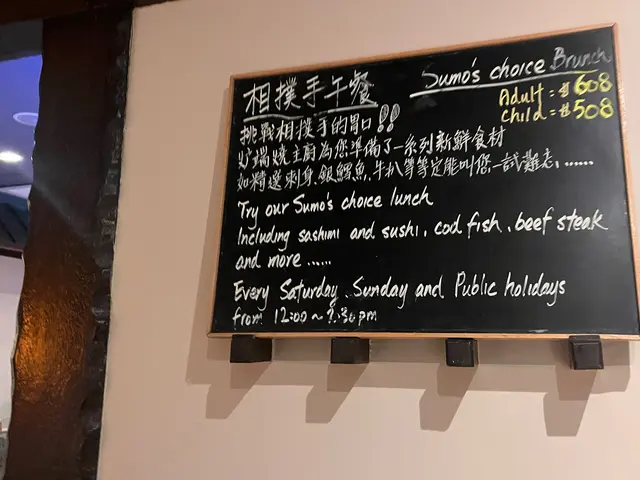 相撲手午餐
Sumo's choice Brunch
Adult = $608
Child = $508
挑戰相撲手的胃口!!
炉端燒主廚為您準備了一系列新鮮食材
如精選刺身、銀鱈魚、牛扒等等定能叫您一試難忘......
Try our Sumo's choice lunch
Including sashimi and sushi, cod fish, beef steak
and more ......
Every Saturday, Sunday and Public holidays
from 12:00 ~ 2:30pm